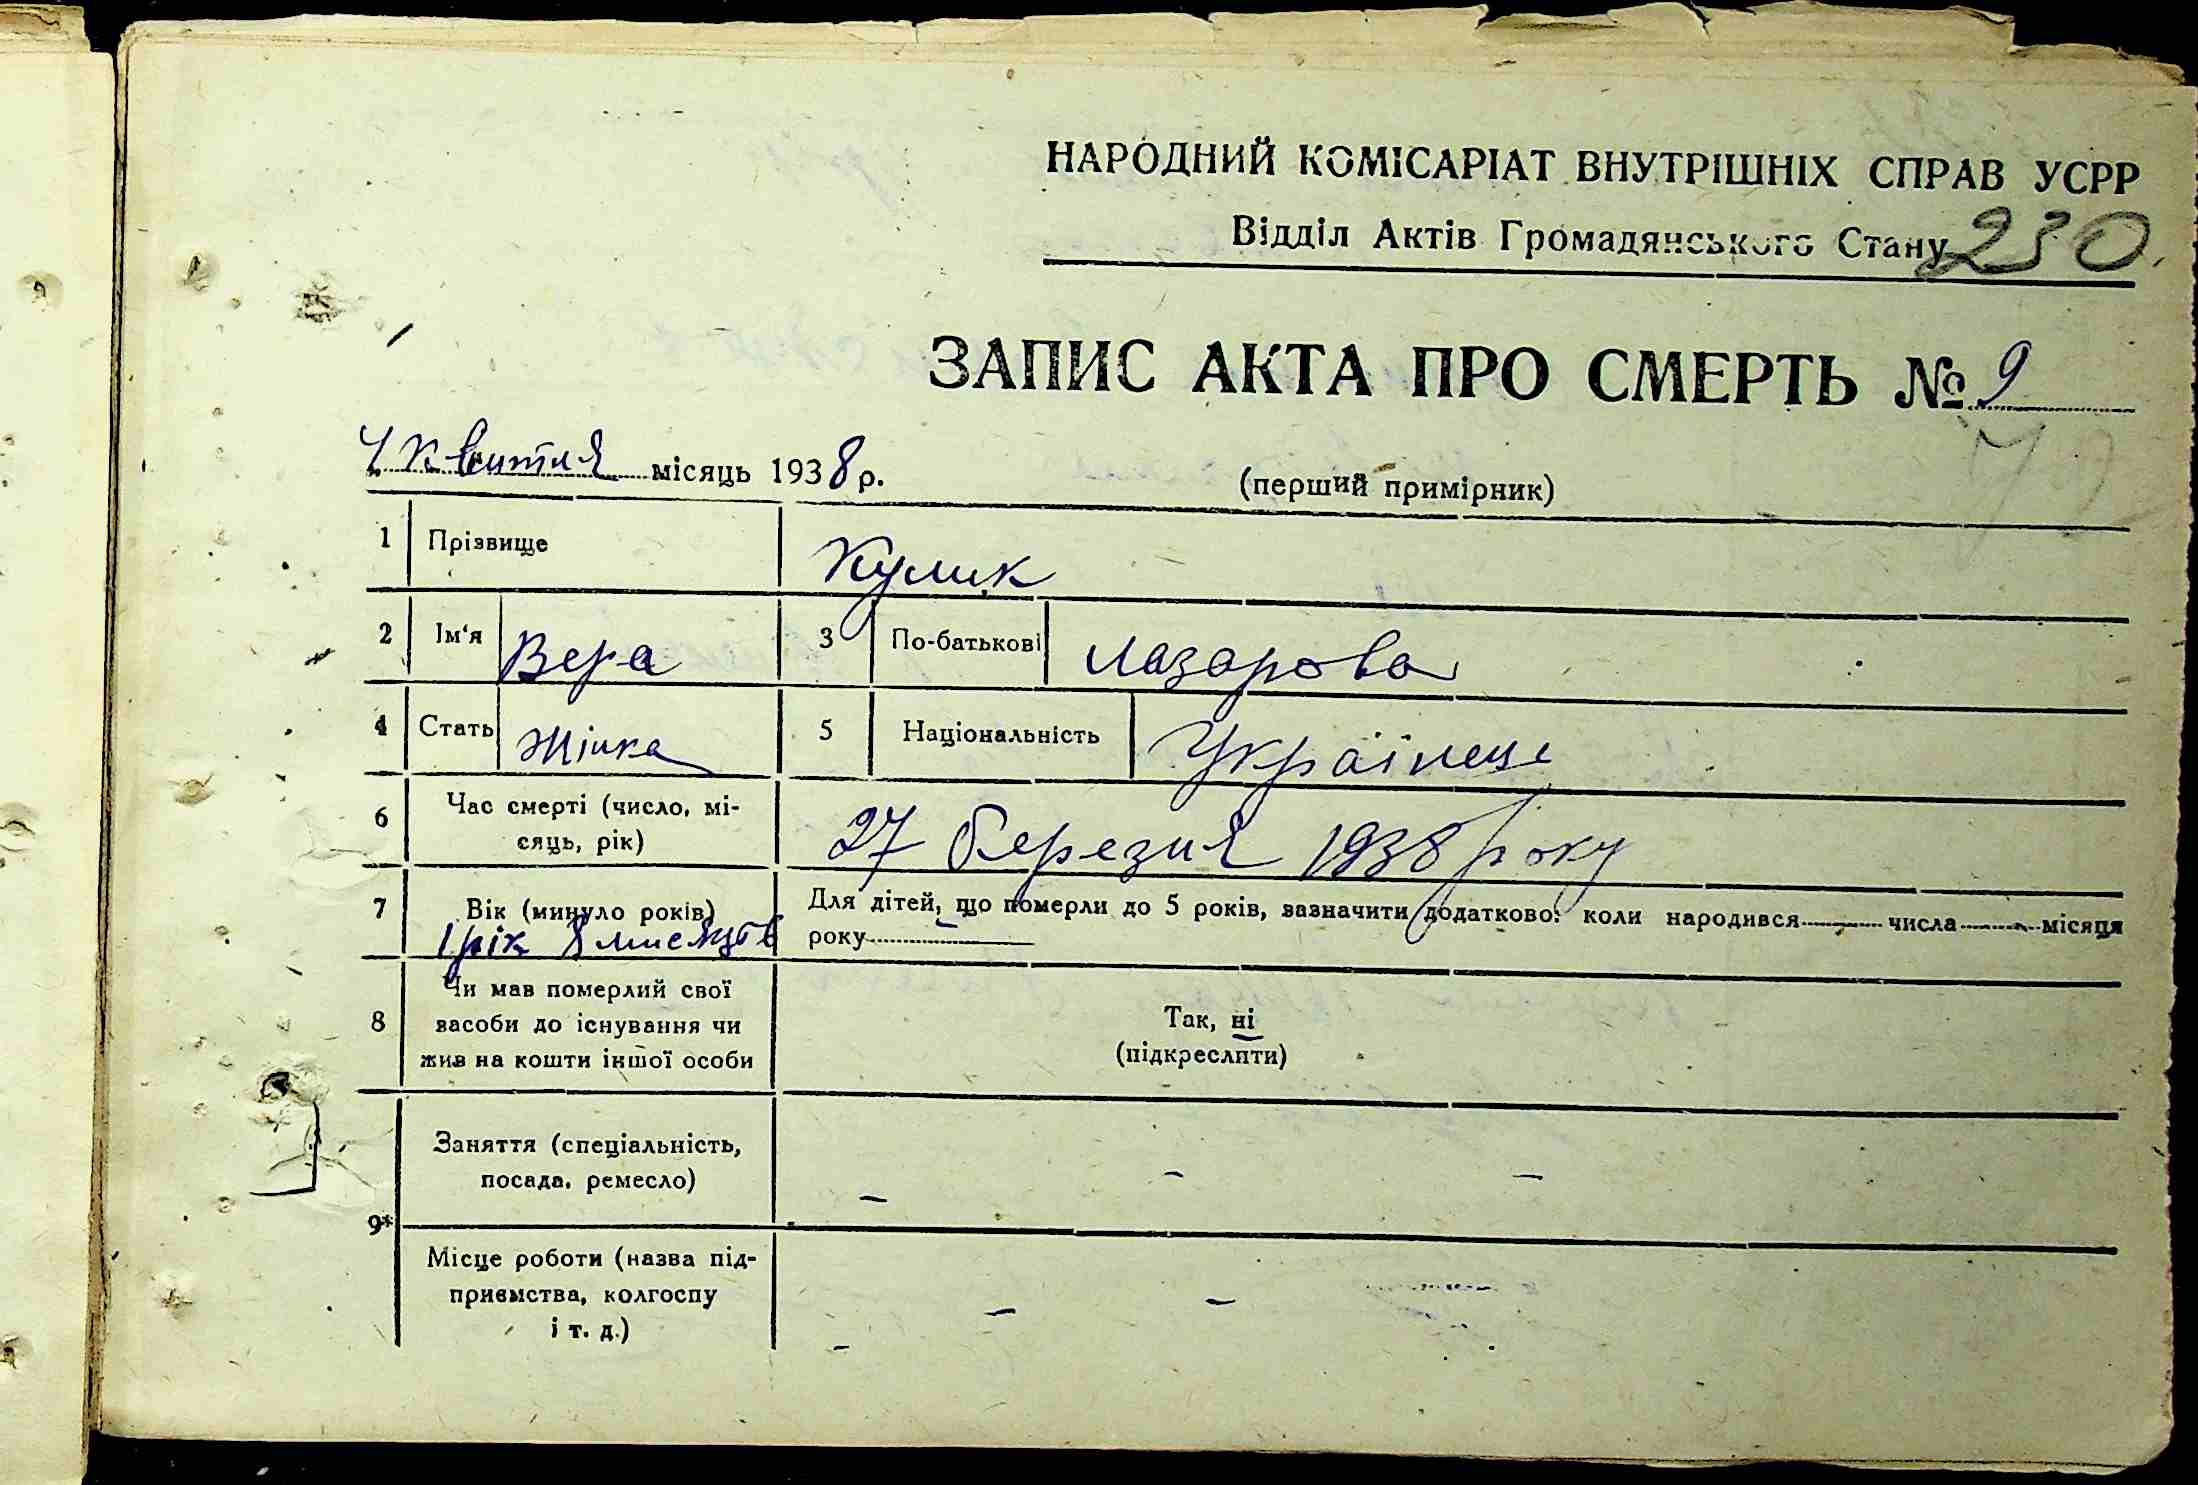 НАРОДНИЙ КОМІСАРІАТ ВНУТРІШНІХ СПРАВ УСРР
Відділ Актів Громадянського Стану 230
ЗАПИС АКТА ПРО СМЕРТЬ № 9
4 квитня місяць 1938 р.
(перший примірник)
1 Прізвище Кулик
2 Ім'я Вера 3 По-батькові Лазарова
4 Стать жінка 5 Національність Українець
6 Час смерті (число, мі-
сяць, рік) 27 березня 1938 року
7 Вік (минуло років) 1 рік 8 мисяців
Для дітей, що померли до 5 років, зазначити додатково: коли народився числа місяця
року
8 Чи мав померлий свої
засоби до існування чи
жив на кошти іншої особи
Так, ні
(підкреслити)
9* Заняття (спеціальність,
посада, ремесло) - - -
Місце роботи (назва під-
приємства, колгоспу
і т. д.) - - -